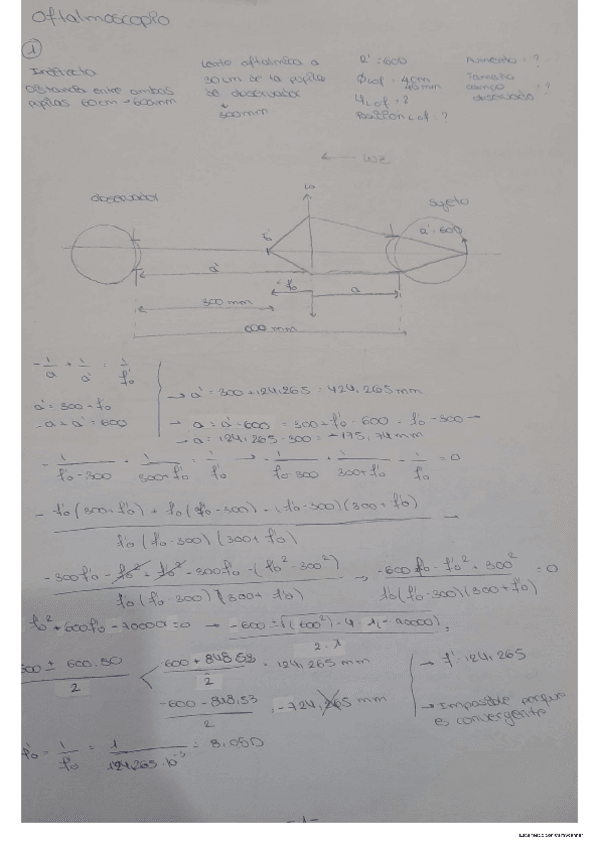 Oftalmoscopio
1
Indirecto
Distancia entre ambas
pupilas 60cm → 600mm
Lente oftálmica a
30cm de la pupila
de observador
300mm
R' = 600
Ølof = 4cm
40mm
Posición lof = ?
Aumento = ?
Tamaño
campo = ?
observado
← luz
observador
sujeto
R' = 600
a'
f'o
a
300 mm
600 mm
-1/a + 1/a' = 1/f'o
a' = 300 + f'o
-a + a' = 600
→ a' = 300 + 124,265 = 424,265 mm
→ a = a' - 600 = 300 + f'o - 600 = f'o - 300 →
→ a = 124,265 - 300 = -175,74 mm
-1/(f'o - 300) + 1/(300 + f'o) = 1/f'o → -1/(f'o - 300) + 1/(300 + f'o) - 1/f'o = 0
-f'o(300 + f'o) + f'o(f'o - 300) - (f'o - 300)(300 + f'o)
f'o(f'o - 300)(300 + f'o)
-300f'o - f'o² + f'o² - 300f'o - (f'o² - 300²) → -600f'o - f'o² + 300² = 0
f'o(f'o - 300)(300 + f'o) f'o(f'o - 300)(300 + f'o)
f'o² + 600f'o - 90000 = 0 → -600 ± √(600²) - 4 · 1(-90000)
2 · 1
600 + 848,53 / 2 = 124,265 mm
-600 - 848,53 / 2 = -724,265 mm
→ f' = 124,265
→ Imposible porque
es convergente
= 1/f'o = 1/(124,265 · 10⁻³) = 8,05D
- 1 -